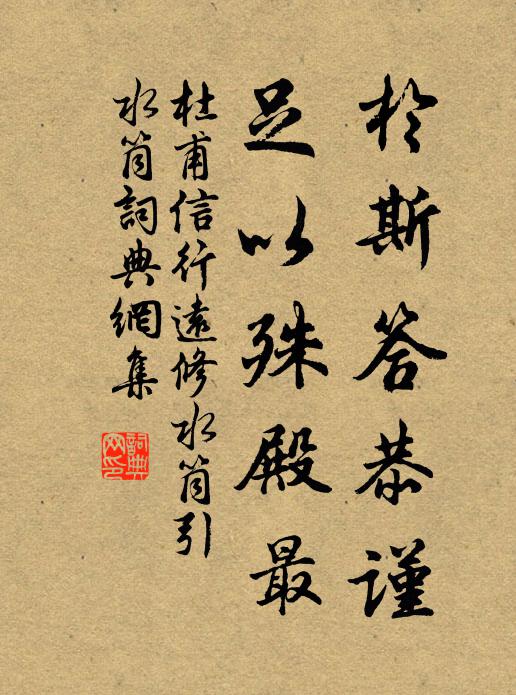 於斯答恭謹
足以殊殿最
杜甫信行遠修水筒引
水筒詞典網集
詞典網印